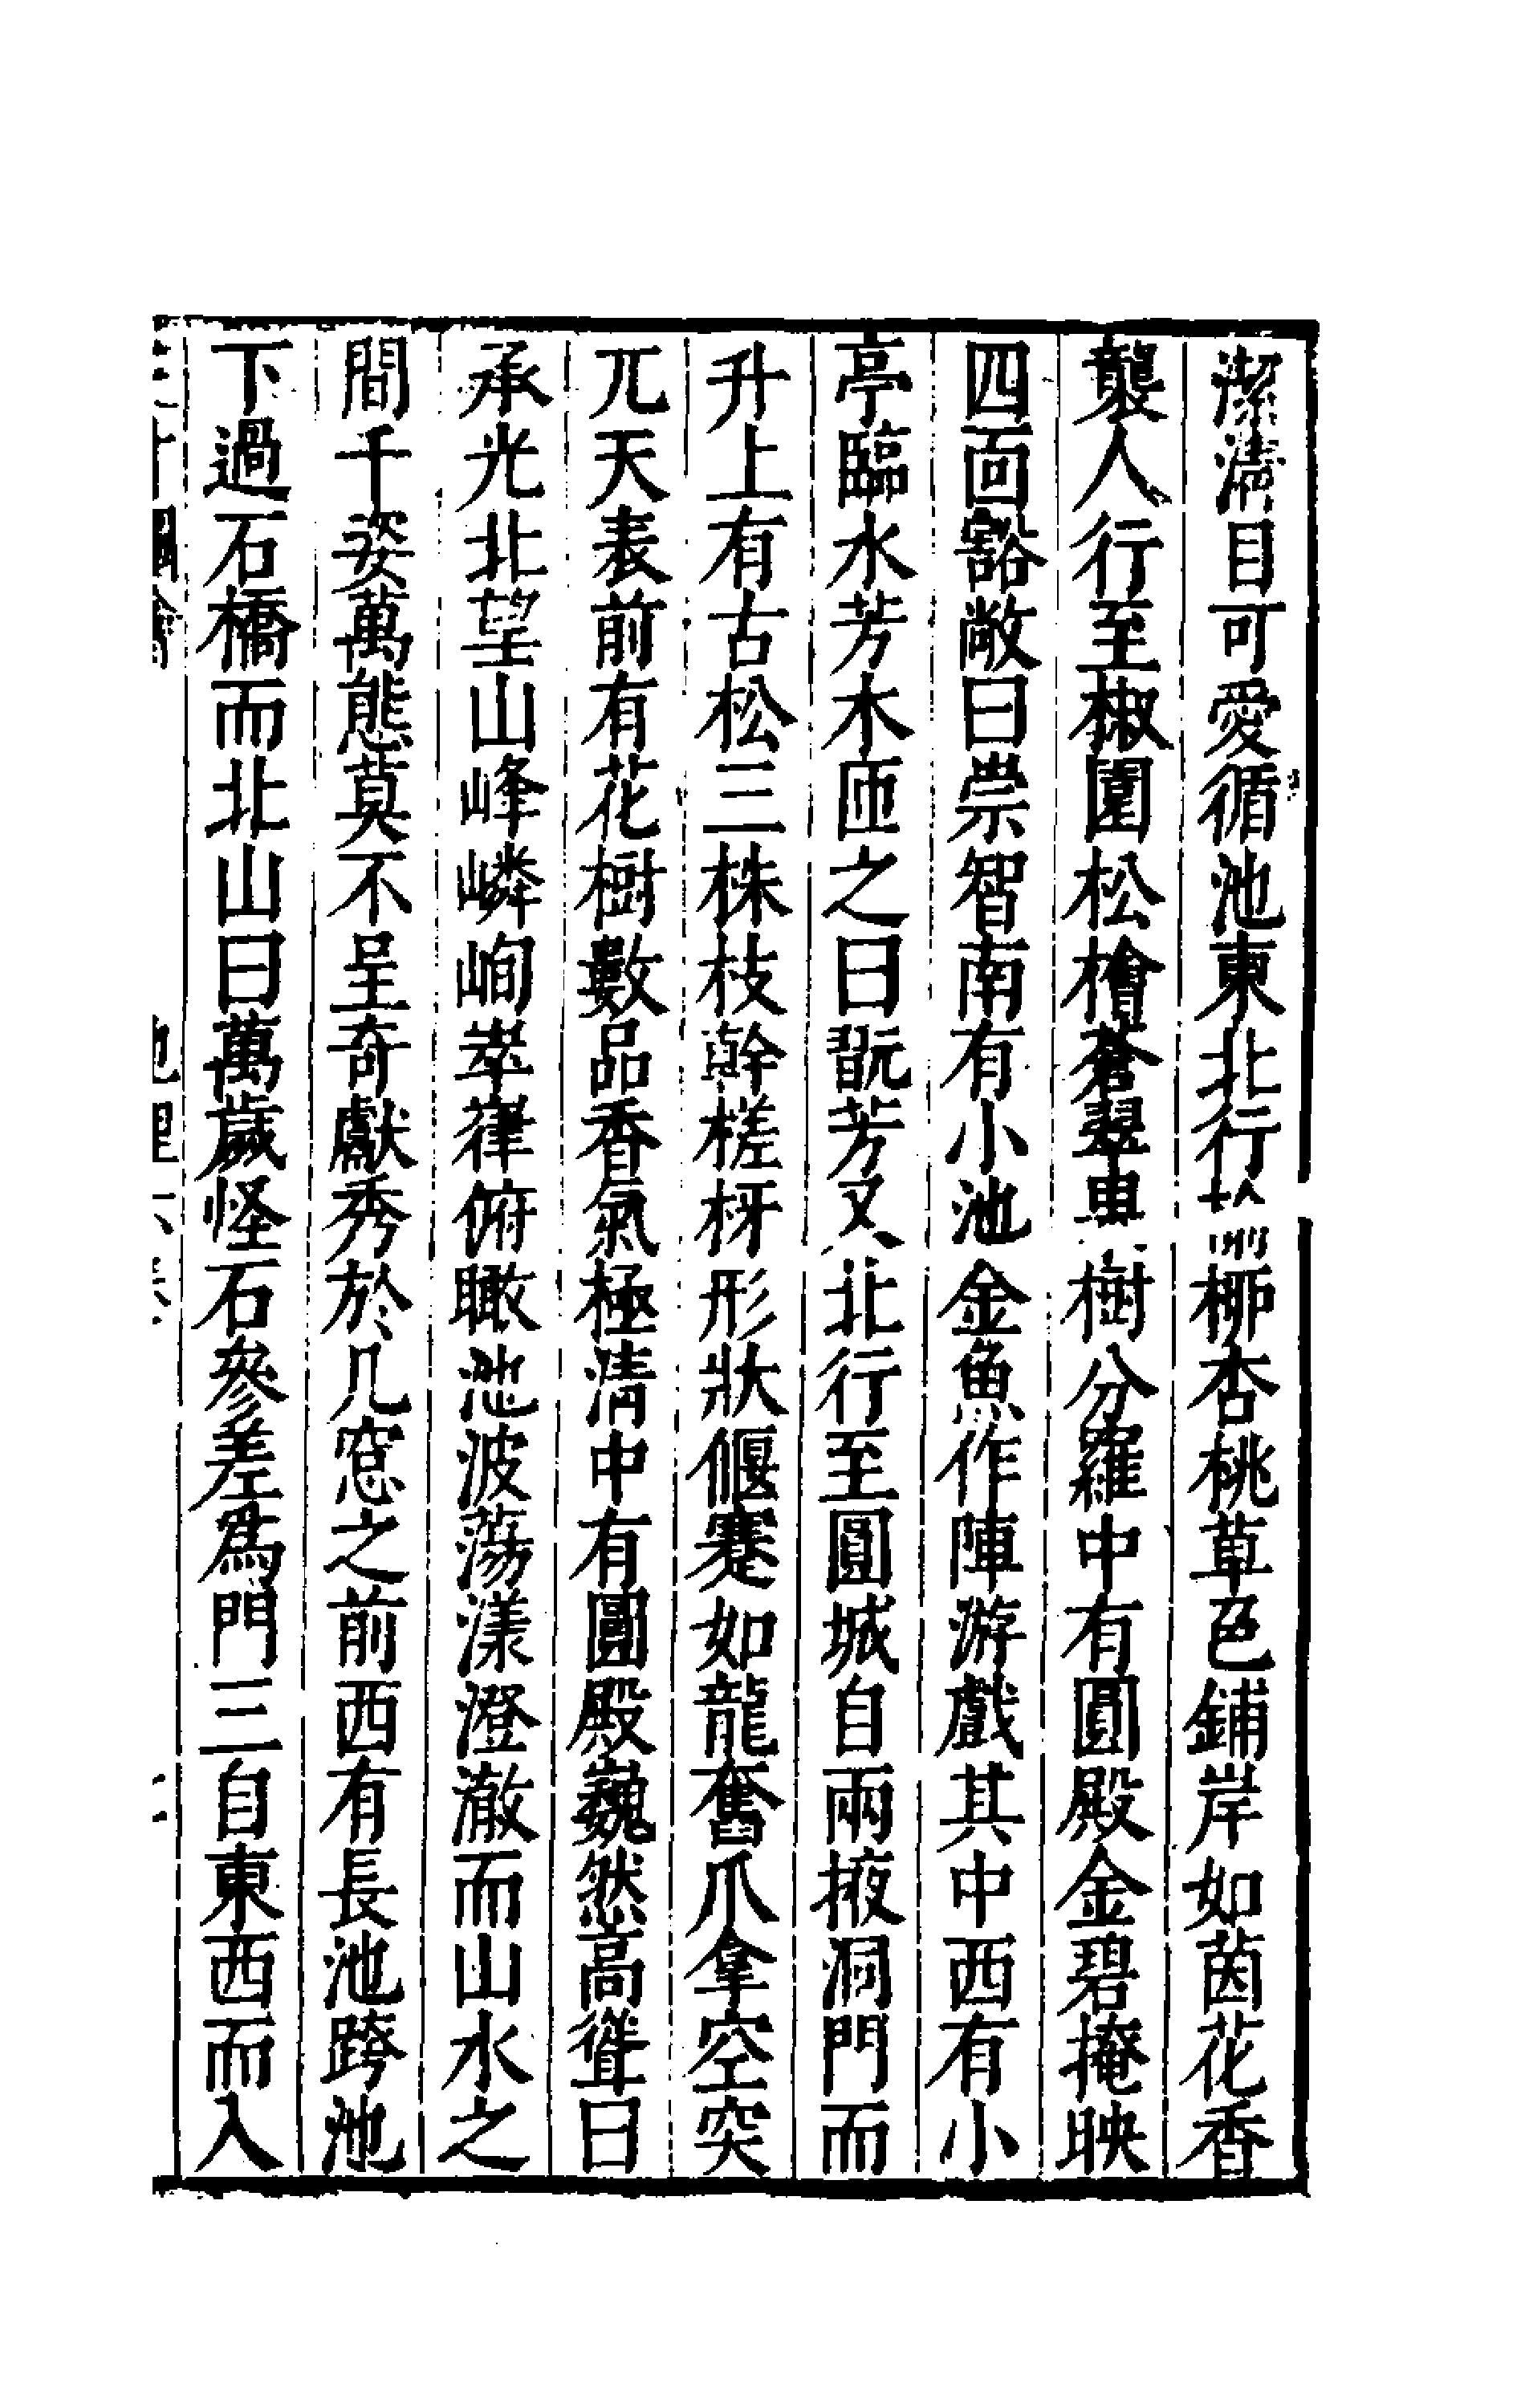 潔清目可愛循池東北行柳杏桃草色鋪岸如茵花香
襲人行至椒園松檜蒼翠樹分羅中有圓殿金碧掩映
四面豁敞曰崇智南有小池金魚作陣游戲其中西有小
亭臨水芳木匝之曰翫芳又北行至圓城自兩掖洞門而
升上有古松三株枝幹槎枒形狀偃蹇如龍奮爪拿空突
兀天表前有花樹數品香氣極清中有圓殿巍然高聳曰
承光北望山峰嶙峋崒嵂俯瞰池波蕩漾澄澈而山水之
間千姿萬態莫不呈奇獻秀於几窓之前西有長池跨池
下過石橋而北山曰萬歲怪石參差爲門三自東西而入